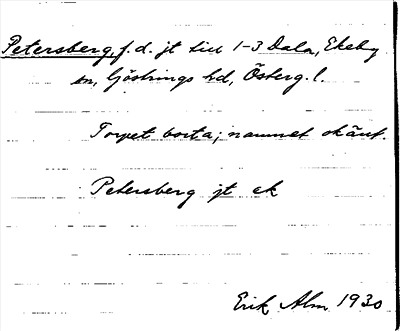 Petersberg, f.d. jt till 1-3 Dala, Ekeby
sn, Göstrings hd, Österg. l.
Torpet borta; namnet okänt.
Petersberg jt ek
Erik Alm 1930